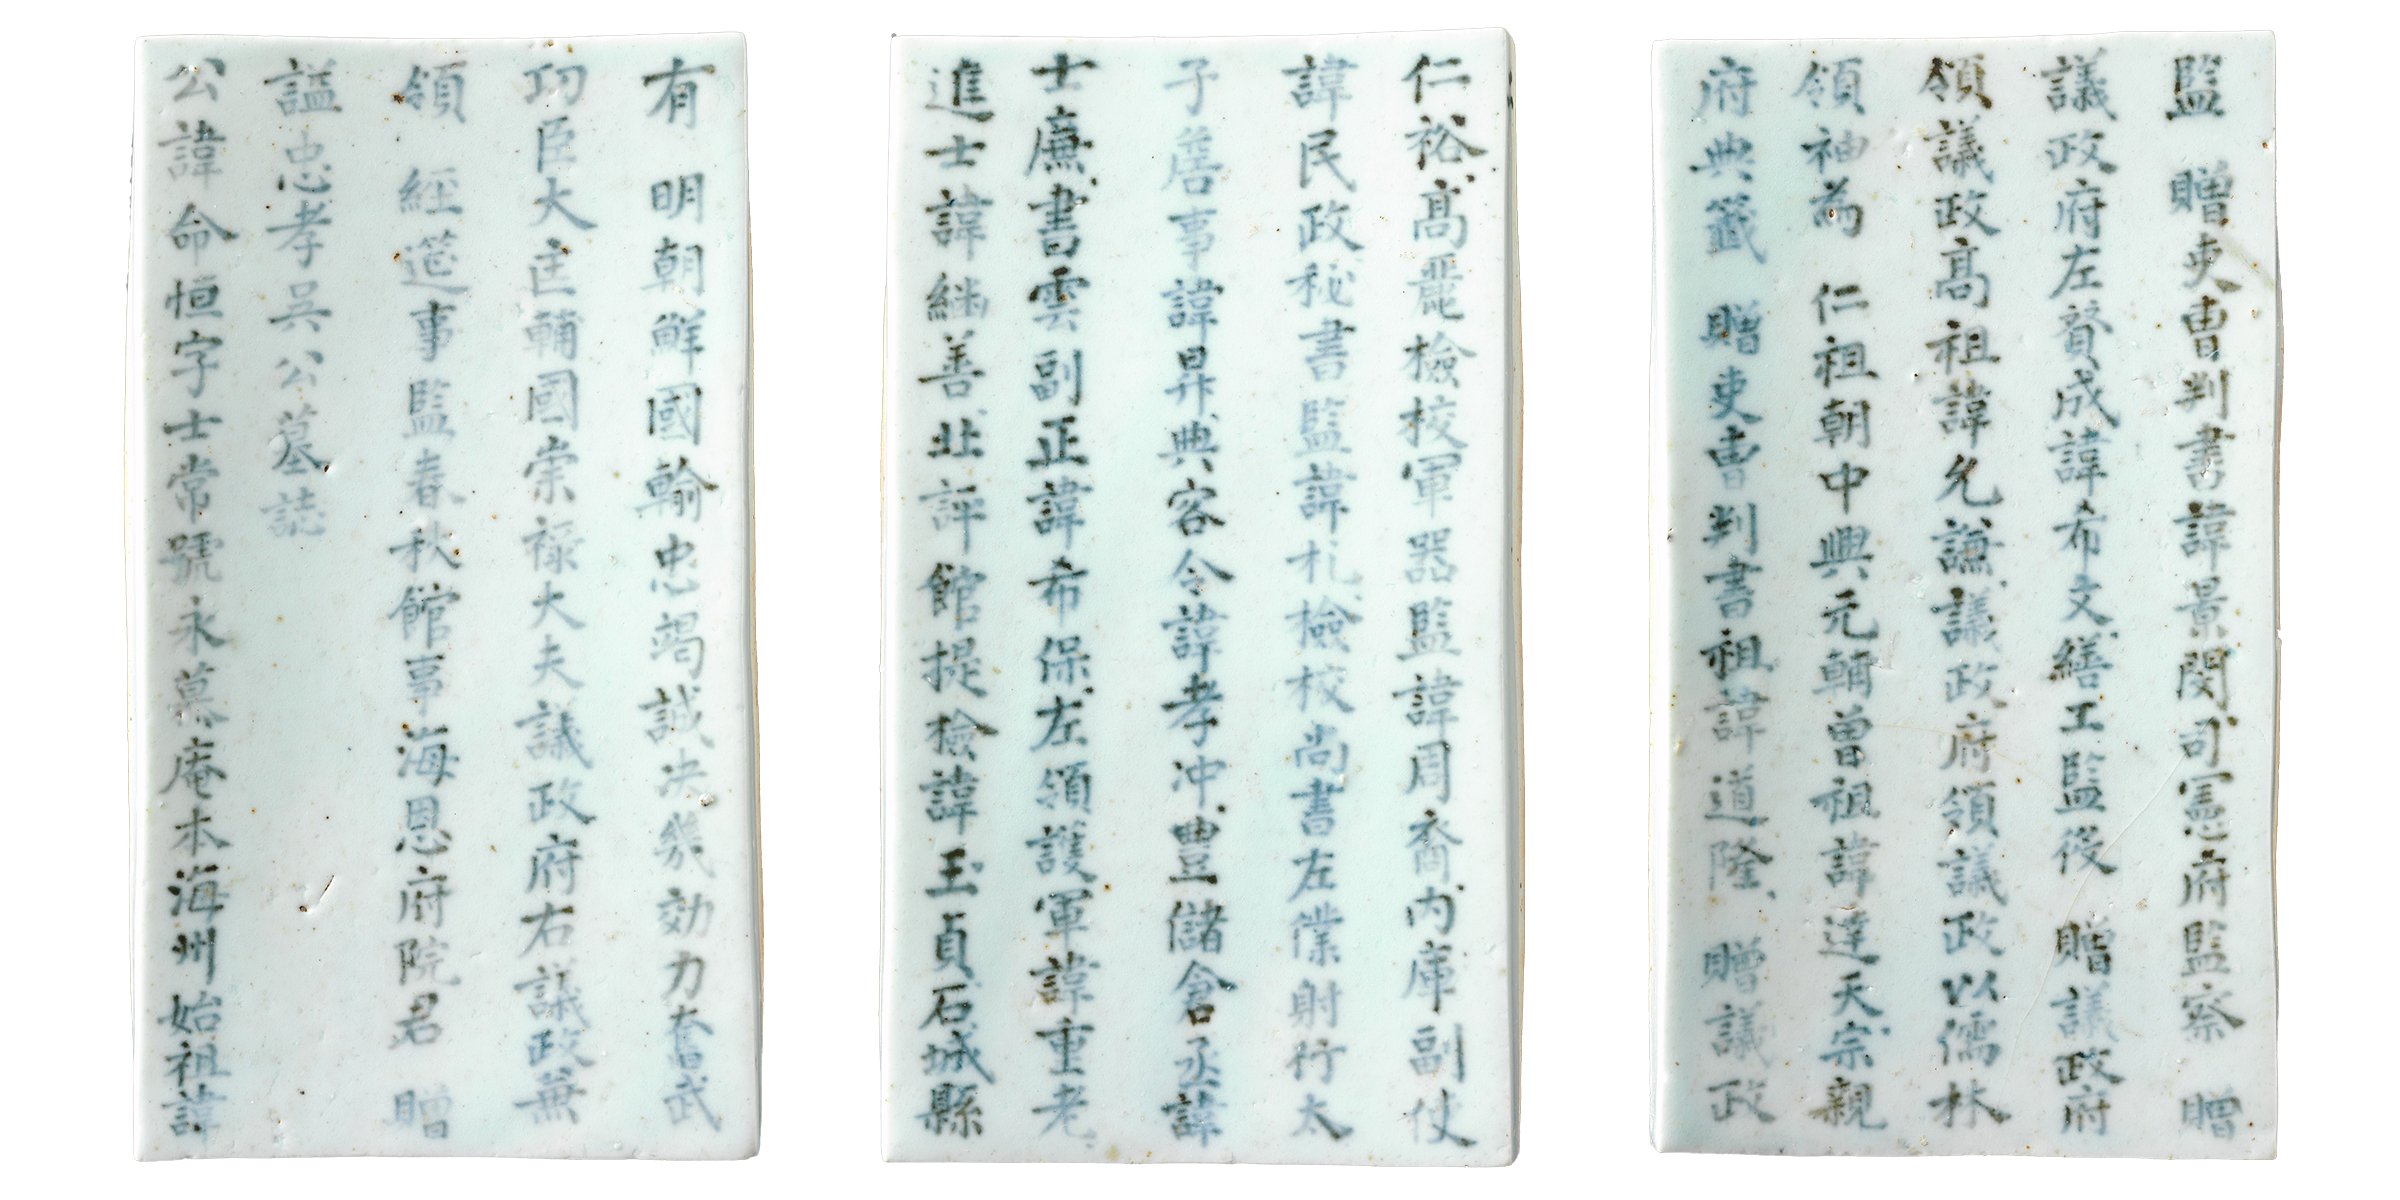 有 明朝鮮國輸忠竭誠决幾効力奮武
功臣大匡輔國崇禄大夫議政府右議政兼
領 經筵事監春秋館事海恩府院君 贈
謚忠孝吳公墓誌
公諱命恒字士常號永慕庵本海州始祖諱
仁裕高麗檢校軍器監諱周裔内庫副使
諱民政秘書監諱札檢校尚書左僕射行太
子詹事諱昇典客令諱孝冲豊儲倉丞諱
士廉書雲副正諱希保左領護軍諱重老
進士諱継善北評館提檢諱玉貞石城縣
監 贈吏曹判書諱景閔司憲府監察 贈
議政府左賛成諱希文繕工監役 贈議政府
領議政高祖諱允謙議政府領議政以儒林
領袖為 仁祖朝中興元輔曽祖諱達天宗親
府典籤 贈吏曹判書祖諱道隆 贈議政